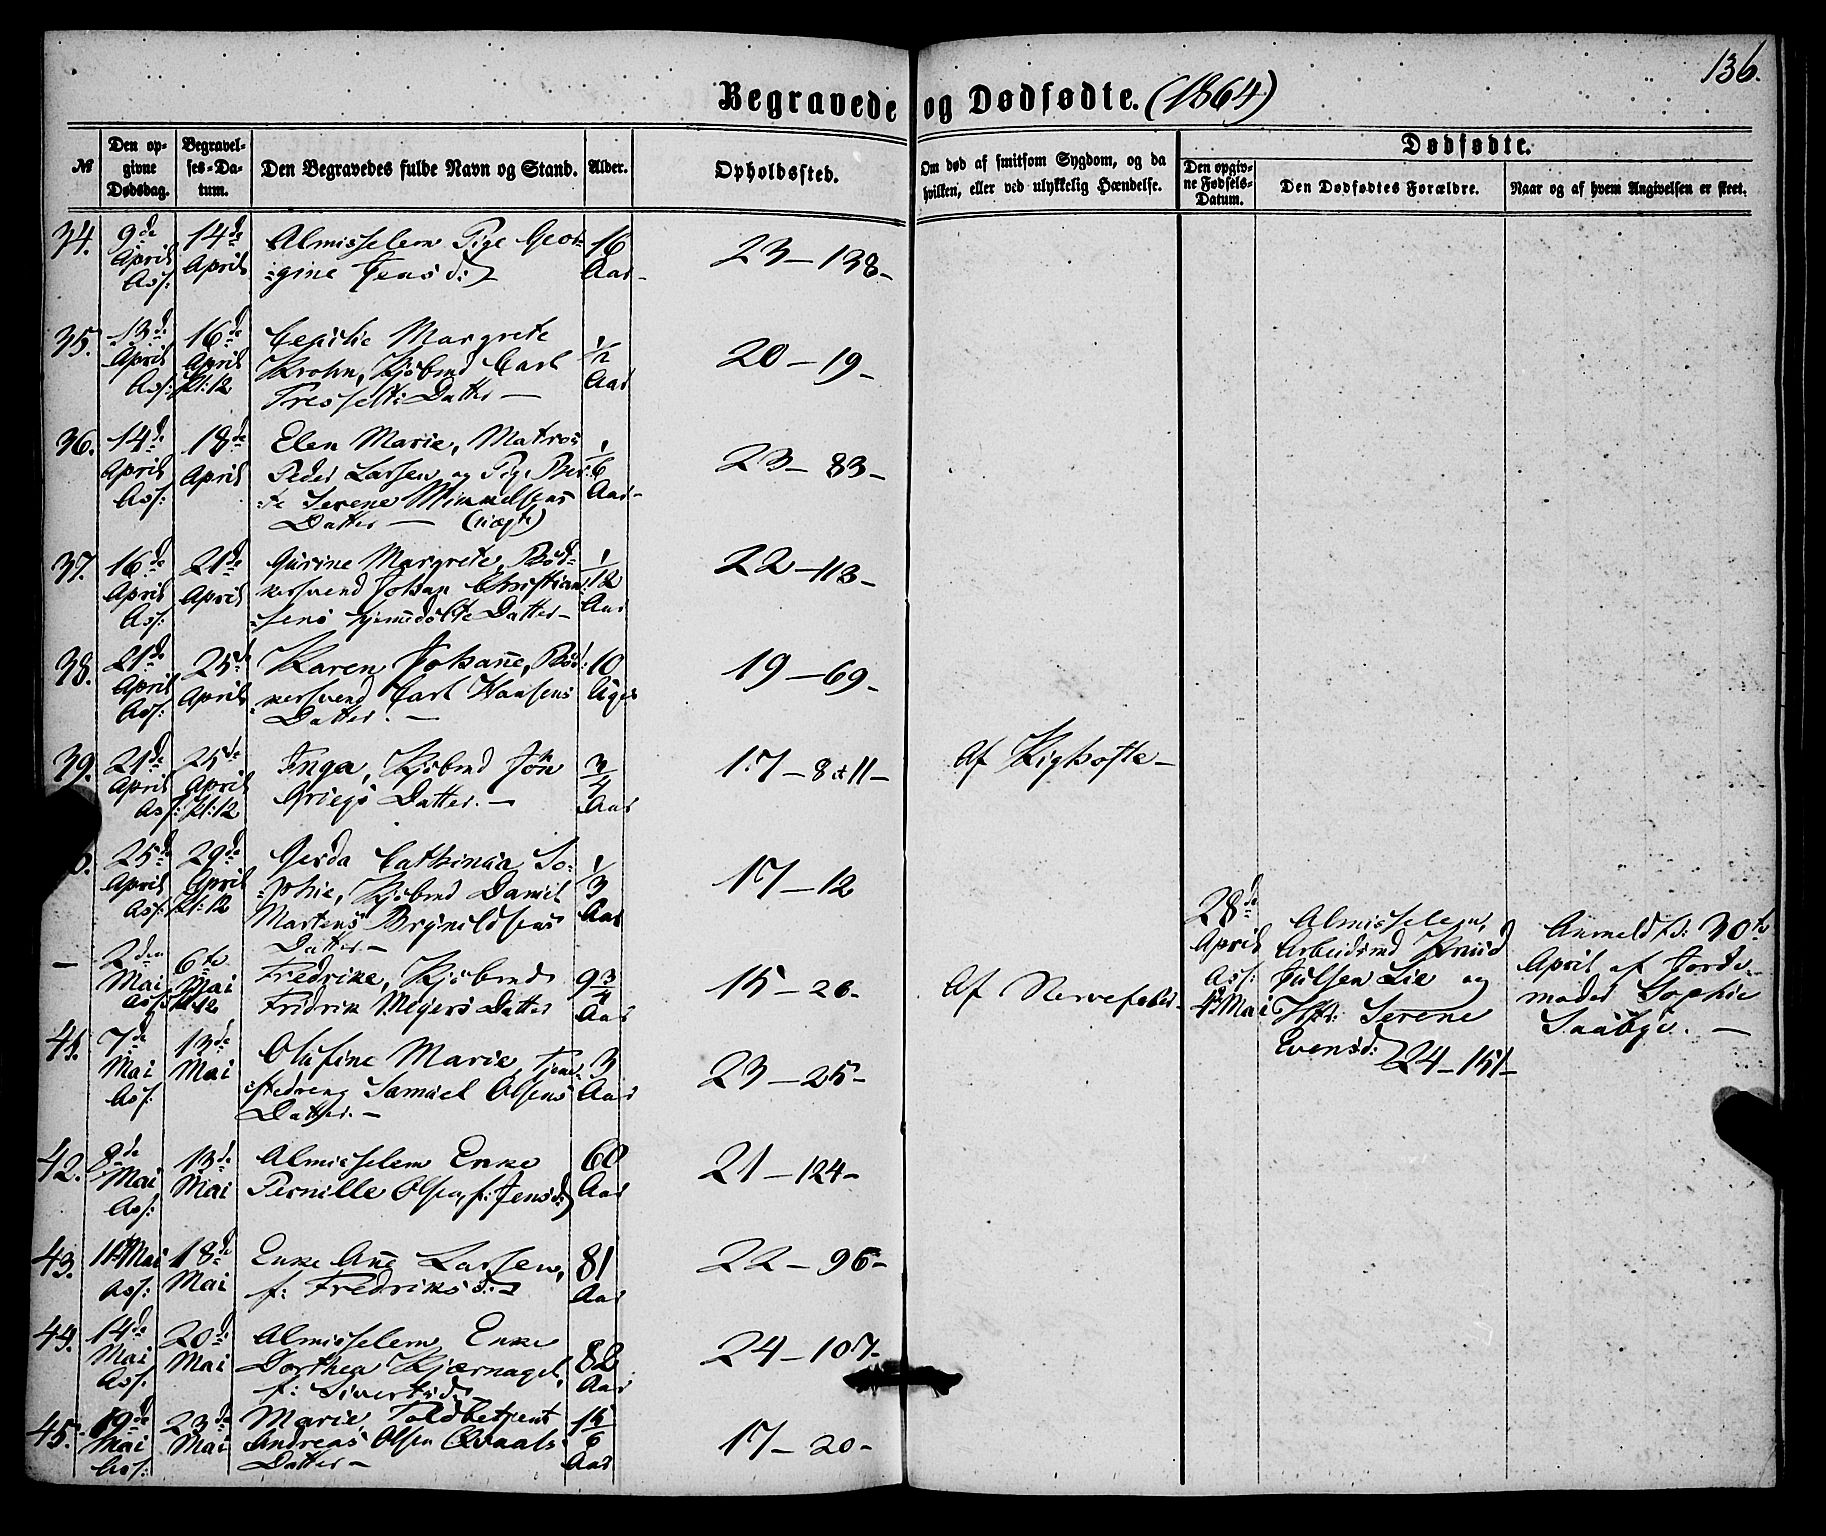 136.
Begravede og Dødfødte. (1864)
№
Den opgivne Dødsdag.
Begravelses-Datum.
Den Begravedes fulde Navn og Stand.
Alder.
Opholdssted.
Om død af smitsom Sygdom, og da hvilken, eller ved ulykkelig Hændelse.
Dødfødte.
Den opgivne Fødsels-Datum.
Den Dødfødtes Forældre.
Naar og af hvem Angivelsen er skeet.
34. 9de April Ass: 14de April Almisselem Pige Geor- 16 Aar 23–138–
gine Jensd:
35. 13de April Ass: 16de April Kl: 12 Cecilie Margrete 1/2 Aar 20–19–
Krohn, Kjøbmd Carl
Tresselt: Datter –
36. 14de April Ass: 18de April Elen Marie, Matros 1/6 Aar 23–83–
Peder Larsen og Pige Ber-
te Serene Mikkelsens
Datter – (uægte)
37. 16de April Ass: 21de April Gurine Margrete, Bød- 1/12 Aar 22–113–
kersvend Johan Christian-
sens hjemedøbte Datter –
38. 21de April Ass: 25de April Karen Johanne, Bød- 10 Uger 19–69–
kersvend Carl Hansens
Datter. –
39. 21de April Ass: 25de April Kl: 12 Inga, Kjøbmd Jön 3/4 Aar 17–8 & 11– Af Kighoste –
Griegs Datter. –
25de April Ass: 29de April Kl: 12 Gerda Cathinca So- 1/3 Aar 17–12
phie, Kjøbmd Daniel
Martens Brynildsens
Datter –
– 2den Mai Ass: 6te Mai Fredrike, Kjøbmd 9 3/4 Aar 15–20– Af Nervefeber –
Fridrik Meyers Datter
28de April Ass: 4de Mai
Almisselem,
Arbeidsmd Knud
Juelsen Lie og
Hst: Serene
Evensd: 24–151–
Anmeldt d: 30te
April af Jorde-
moder Sophie
Saabye. –
41. 7de Mai Ass: 13de Mai Olufine Marie, Tjene- 3 Aar 23–25–
stedreng Samuel Olsens
Datter. –
42. 8de Mai Ass: 13de Mai Almisselem Enke 60 Aar 21–124–
Pernille Olsen, f: Jensd:
43. 11te Mai Ass: 18de Mai Enke Ane Larsen, 81 Aar 22–96–
f: Fredriksd:
44. 14de Mai Ass: 20de Mai Almisselem Enke 82 Aar 24–107–
Dorthea Kjærnagel,
f: Sivertsd:
45. 19de Mai Ass: 23de Mai Marie, Toldbetjent 15/6 Aar 17–20–
Andreas Olsen Qvaals
Datter –